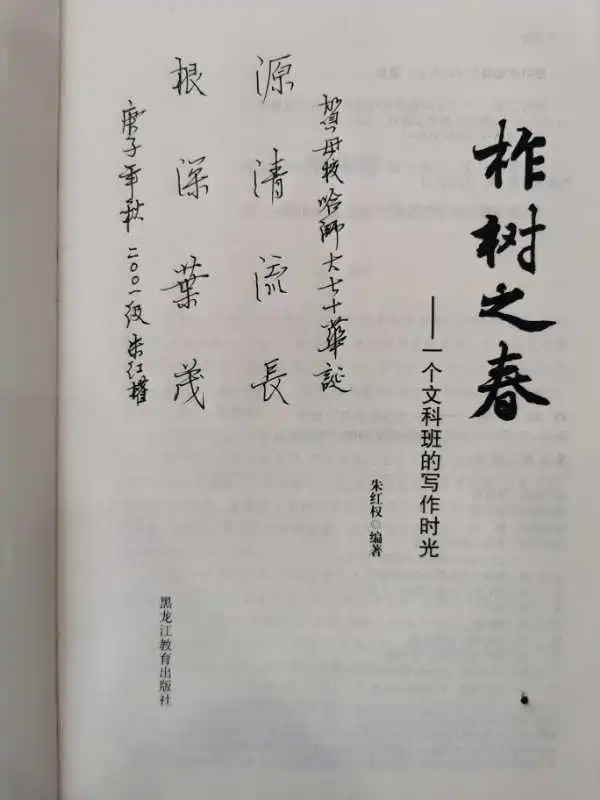 柞树之春
——一个文科班的写作时光
朱红权◎编著
賀母校哈師大七十華誕
源清流長
根深葉茂
庚子年秋 二〇〇一级 朱红權
黑龙江教育出版社